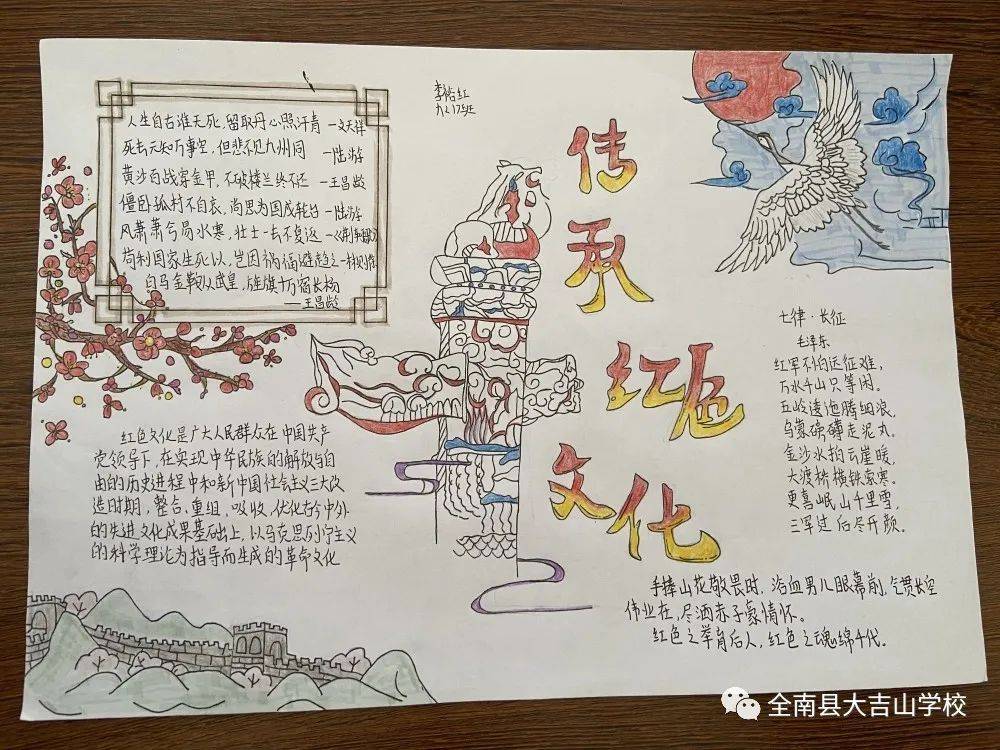 人生自古谁无死，留取丹心照汗青 —文天祥
死去元知万事空，但悲不见九州同 —陆游
黄沙百战穿金甲，不破楼兰终不还 —王昌龄
僵卧孤村不自哀，尚思为国戍轮台 —陆游
风萧萧兮易水寒，壮士一去不复返
苟利国家生死以，岂因祸福避趋之
白马金鞍从武皇，旌旗十万宿长杨
——王昌龄
九2.17班
传承红色文化
七律·长征
毛泽东
红军不怕远征难，
万水千山只等闲。
五岭逶迤腾细浪，
乌蒙磅礴走泥丸。
金沙水拍云崖暖，
大渡桥横铁索寒。
更喜岷山千里雪，
三军过后尽开颜。
红色文化是广大人民群众在中国共产
党领导下，在实现中华民族的解放与自
由的历史进程中和新中国社会主义三大改
造时期，整合，重组，吸收，优化古今中外
的先进文化成果基础上，以马克思列宁主义
的科学理论为指导而生成的革命文化
手捧山花敬畏时，浴血男儿眼幕前，气贯长空
伟业在，尽洒赤子豪情怀。
红色之举育后人，红色之魂绵千代。
全南县大吉山学校